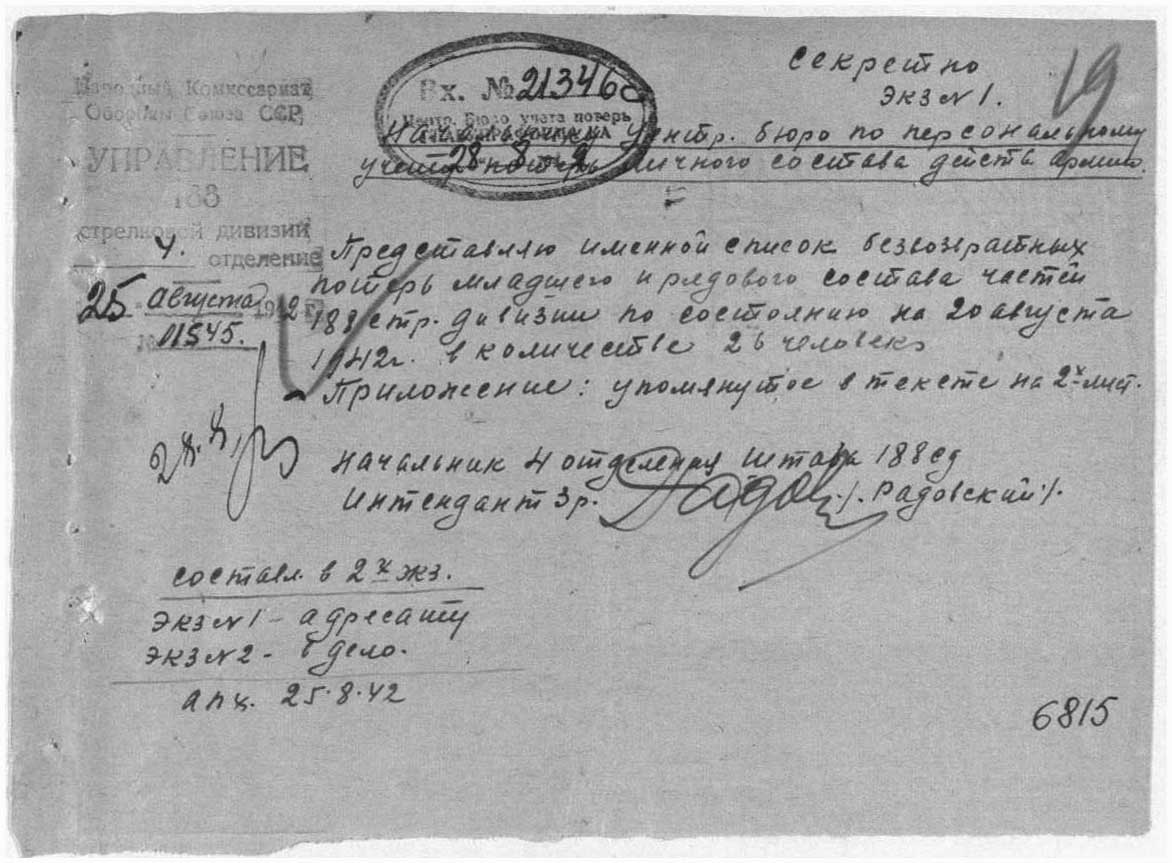 Секретно
Экз №1.
19
Народный Комиссариат
Обороны Союза ССР
УПРАВЛЕНИЕ
188
стрелковой дивизии
4. отделение
25 августа 1942 г.
№ 01545.
Вх. № 21346с
Центр. Бюро учета потерь
28
Начальнику Центр. бюро по персональному
учету потерь личного состава действ армии.
Представляю именной список безвозвратных
потерь младшего и рядового состава частей
188 стр. дивизии по состоянию на 20 августа
1942г. в количестве 26 человек
Приложение: упомянутое в тексте на 2х лист.
Начальник 4 отделения штаба 188 сд
Интендант 3 р. /Радовский/.
составл. в 2х экз.
Экз №1 - адресату
Экз №2 - в дело.
апц. 25.8.42
6815